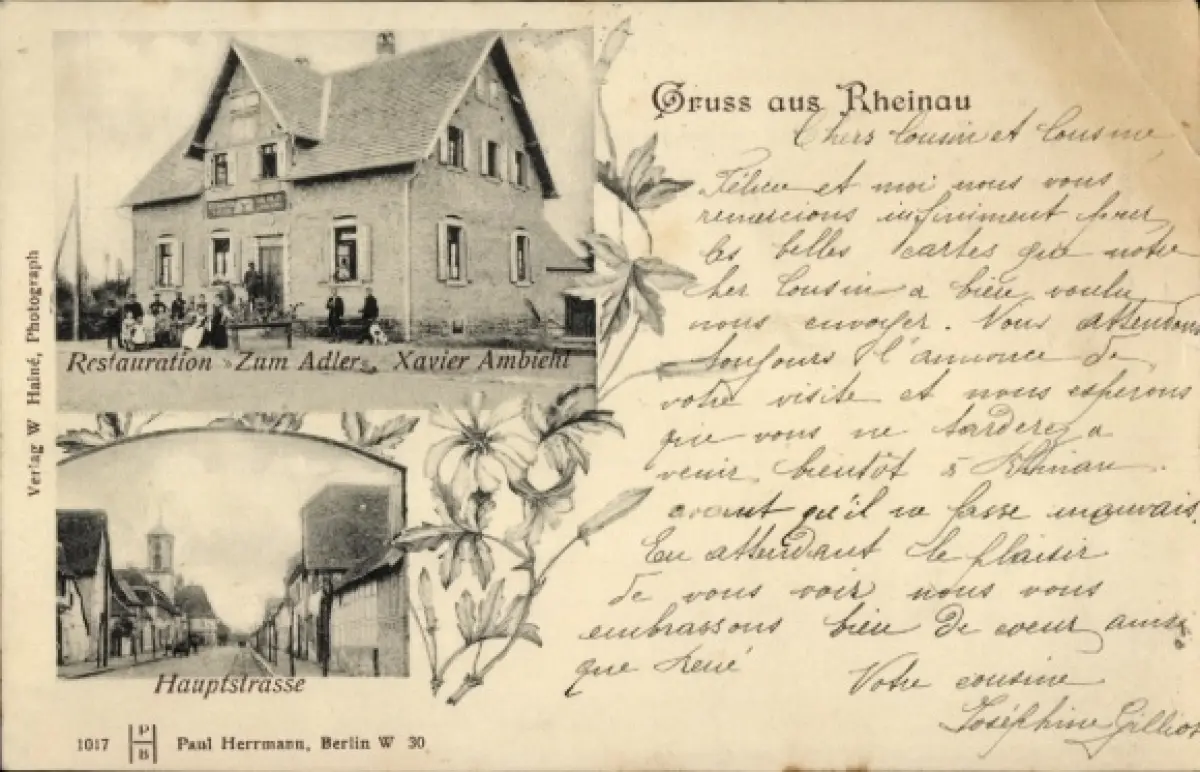 Gruss aus Rheinau
Chers Cousin et Cousine
Félicie et moi nous vous
remercions infiniment pour
les belles cartes que notre
cher Cousin a bien voulu
nous envoyer. Nous attendons
toujours l'annonce de
votre visite et nous esperons
que vous ne tarderez a
venir bientôt à Rhinau.
avant qu'il ne fasse mauvais.
En attendant le plaisir
de vous voir nous vous
embrassons bien de coeur ainsi
que René
Votre cousine
Joséphine Gilliot
Restauration Zum Adler. Xavier Ambiehl
Hauptstrasse
Verlag W Hainé, Photograph
1017 P B Paul Herrmann, Berlin W 30